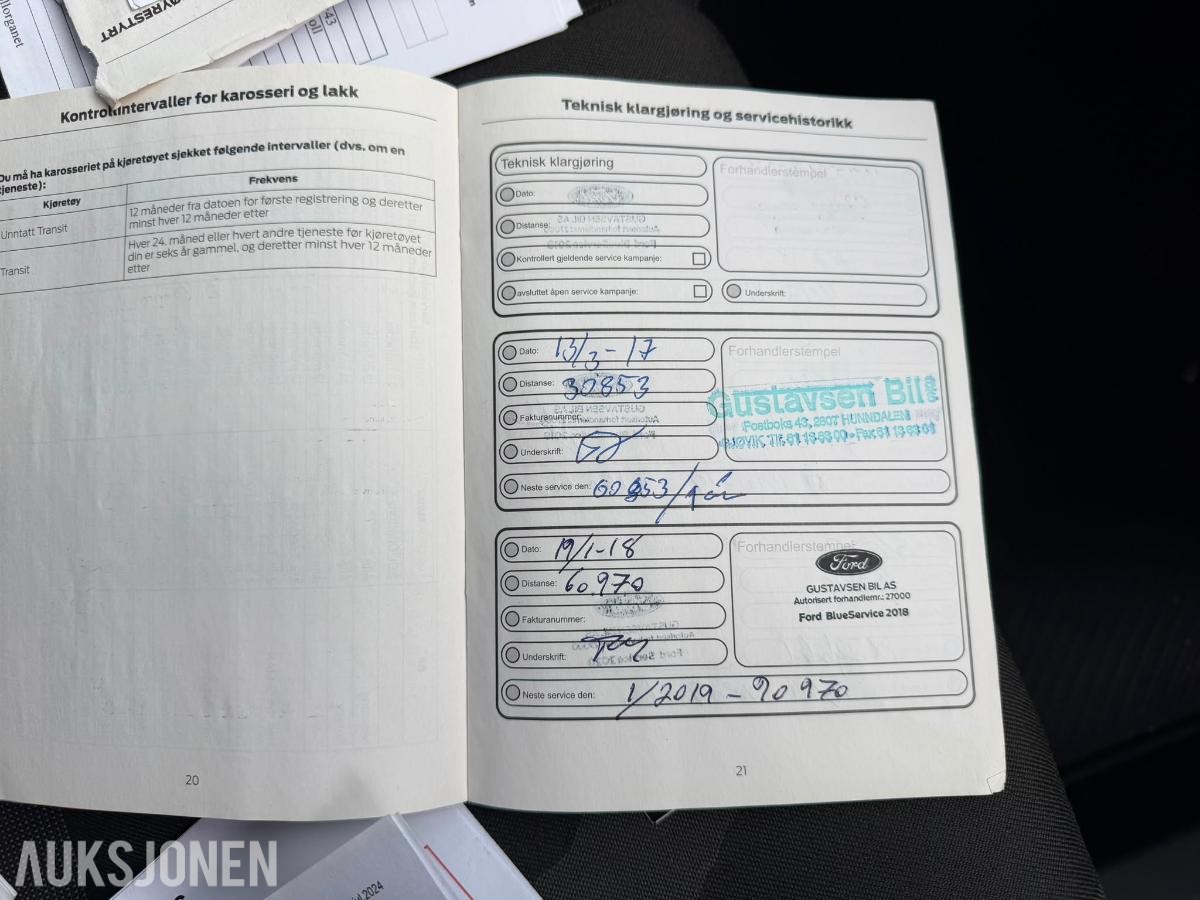 llorganet
ØYRESTYRT
43
oll
Kontrollintervaller for karosseri og lakk
Du må ha karosseriet på kjøretøyet sjekket følgende intervaller (dvs. om en
tjeneste):
Kjøretøy
Frekvens
Unntatt Transit
12 måneder fra datoen for første registrering og deretter
minst hver 12 måneder etter
Transit
Hver 24. måned eller hvert andre tjeneste før kjøretøyet
din er seks år gammel, og deretter minst hver 12 måneder
etter
20
Teknisk klargjøring og servicehistorikk
Teknisk klargjøring
Forhandlerstempel
Dato:
Distanse:
Kontrollert gjeldende service kampanje:
avsluttet åpen service kampanje:
Underskrift:
Dato: 13/3-17
Forhandlerstempel
Distanse: 30853
Gustavsen Bil
Fakturanummer:
Postboks 43, 2807 HUNNDALEN
GJØVIK, Tlf. 61 13 63 00 - Fax 61 13 63 01
Underskrift:
Neste service den: 60853/1 år
Dato: 19/1-18
Forhandlerstempel
Ford
Distanse: 60.970
GUSTAVSEN BIL AS
Autorisert forhandlernr.: 27000
Ford BlueService 2018
Fakturanummer:
Underskrift:
Neste service den: 1/2019 - 90 970
21
2024
AUKSJONEN